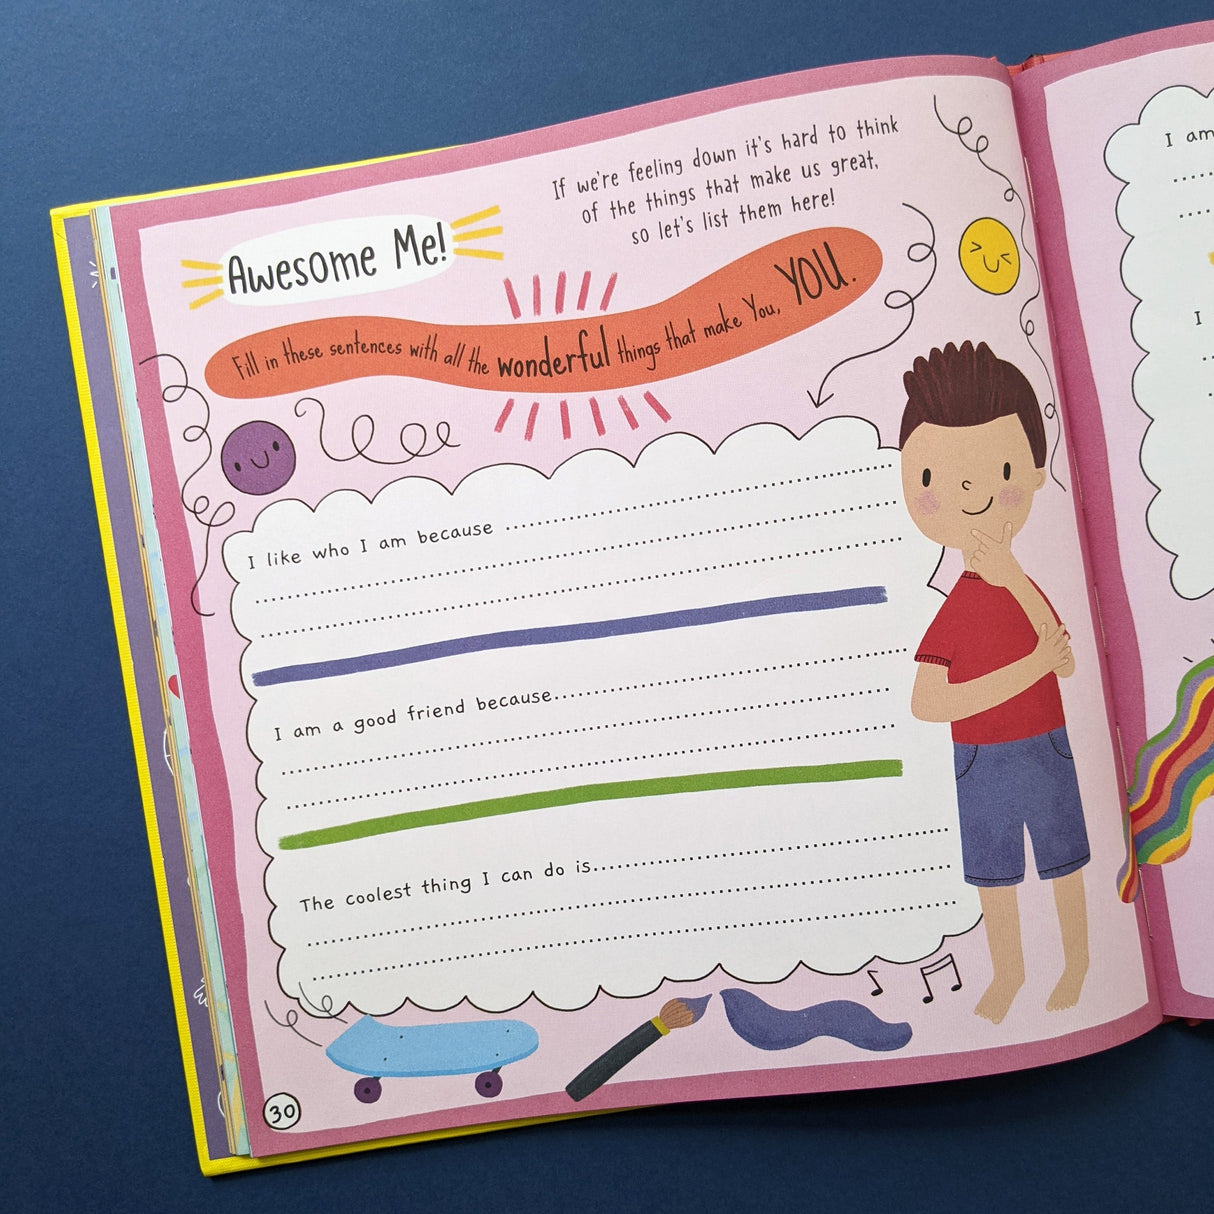 If we're feeling down it's hard to think
of the things that make us great,
so let's list them here!
Awesome Me!
Fill in these sentences with all the wonderful things that make You, YOU.
I like who I am because
I am a good friend because
The coolest thing I can do is
30
I am
I